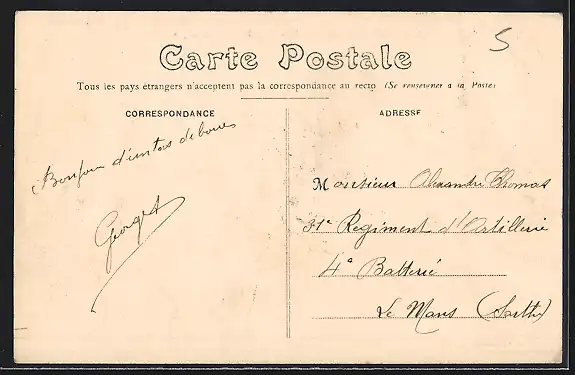 5
Carte Postale
Tous les pays étrangers n'acceptent pas la correspondance au recto (Se renseigner a la Poste)
CORRESPONDANCE
ADRESSE
Bonjour d'un tas de boue
Georget
Monsieur Alexandre Thomas
31e Regiment d'Artillerie
4e Batterie
Le Mans (Sarthe)